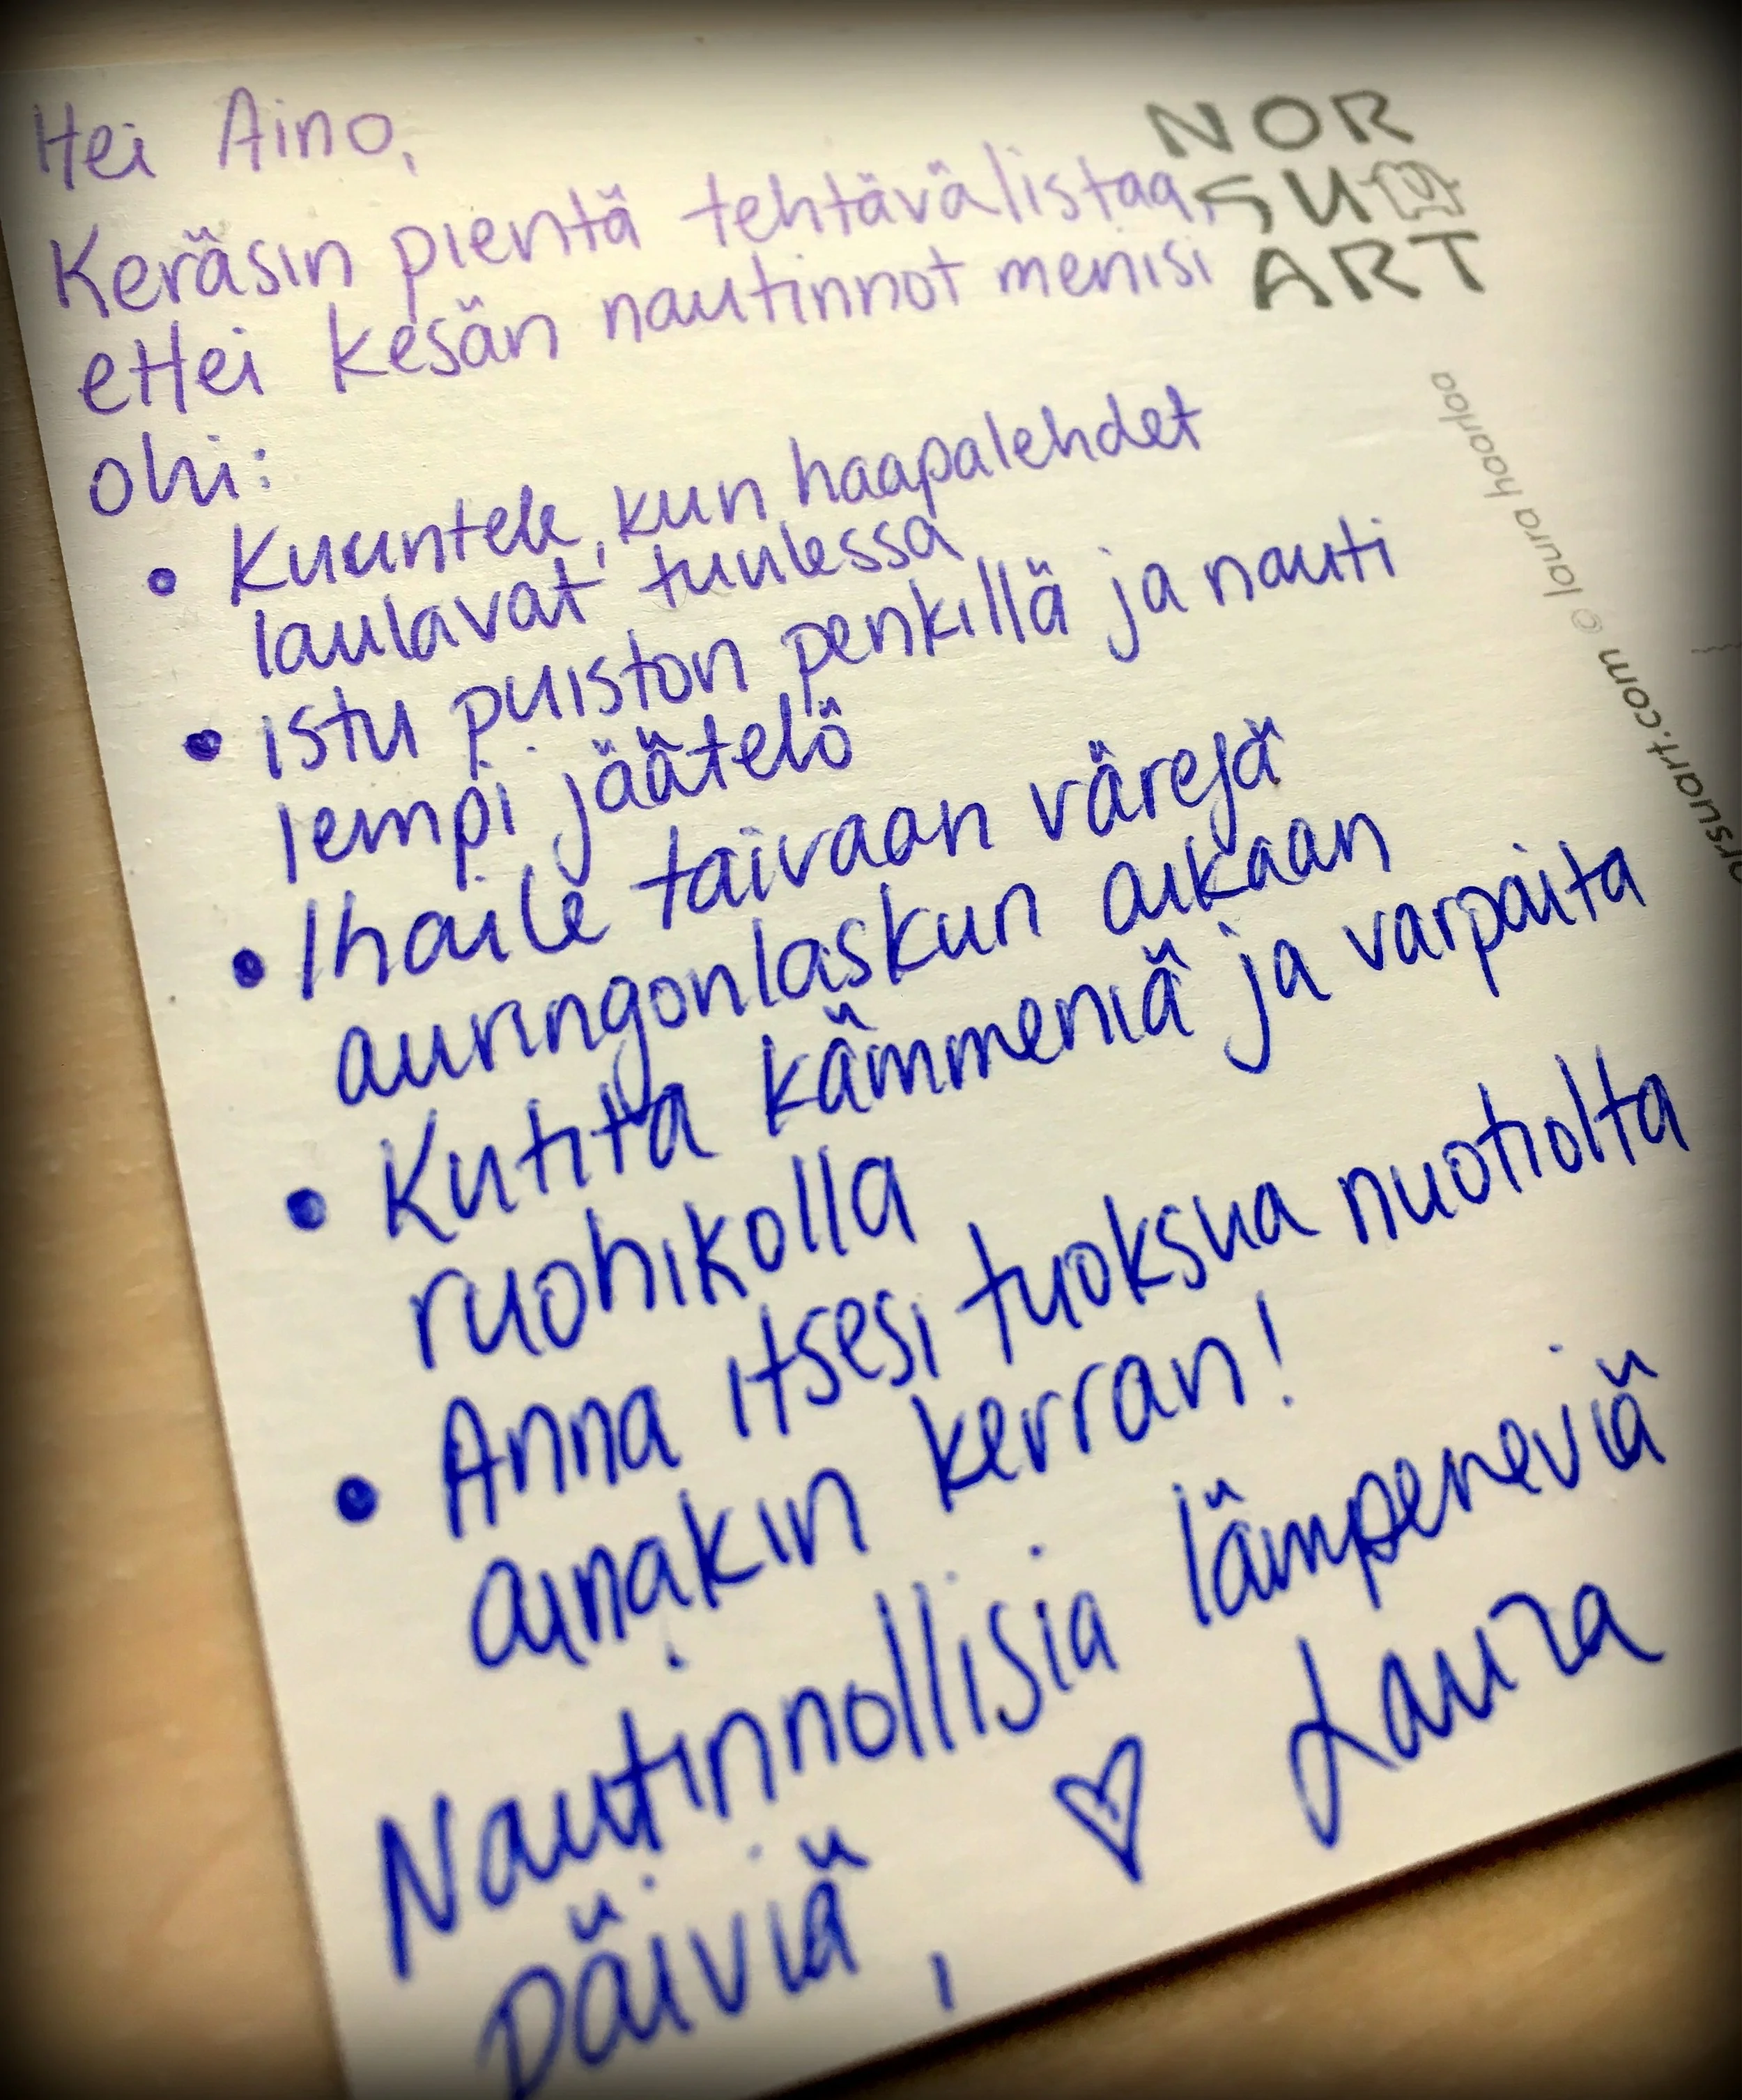 Hei Aino,
Keräsin pientä tehtävälistaa,
ettei kesän nautinnot menisi
ohi:
• Kuuntele, kun haapalehdet
laulavat tuulessa
• istu puiston penkillä ja nauti
lempi jäätelö
• Ihaile taivaan värejä
auringonlaskun aikaan
• Kutita kämmeniä ja varpaita
ruohikolla
• Anna itsesi tuoksua nuotiolta
ainakin kerran!
Nautinnollisia lämpeneviä
päiviä,
♡ Laura
NOR
SU
ART
rsuart.com © laura haarlaa